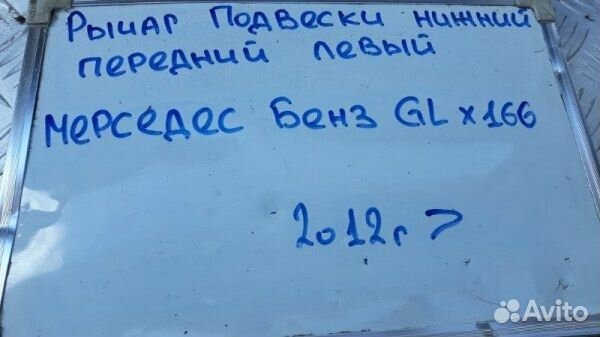 Рычаг Подвески нижний
передний левый
мерседес Бенз GL x166
2012г >
Avito